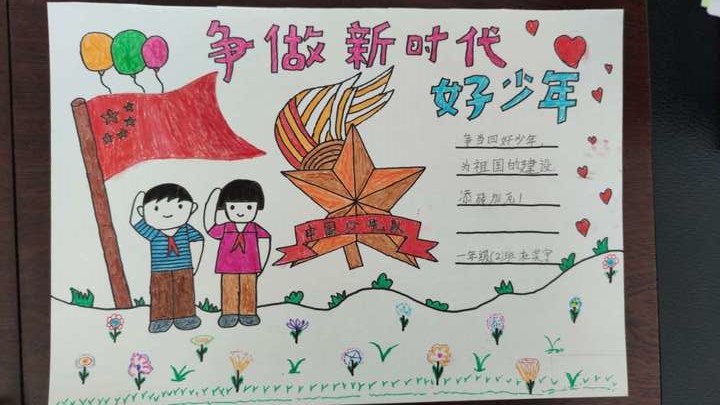 争做新时代
好少年
争当四好少年，
为祖国的建设
添砖加瓦！
中国少先队
一年级(2)班 杜梁宁